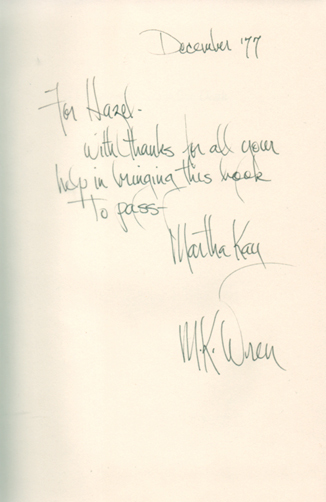 December '77
For Hazel-
with thanks for all your
help in bringing this book
to pass-
Martha Kay
M.K. Wren